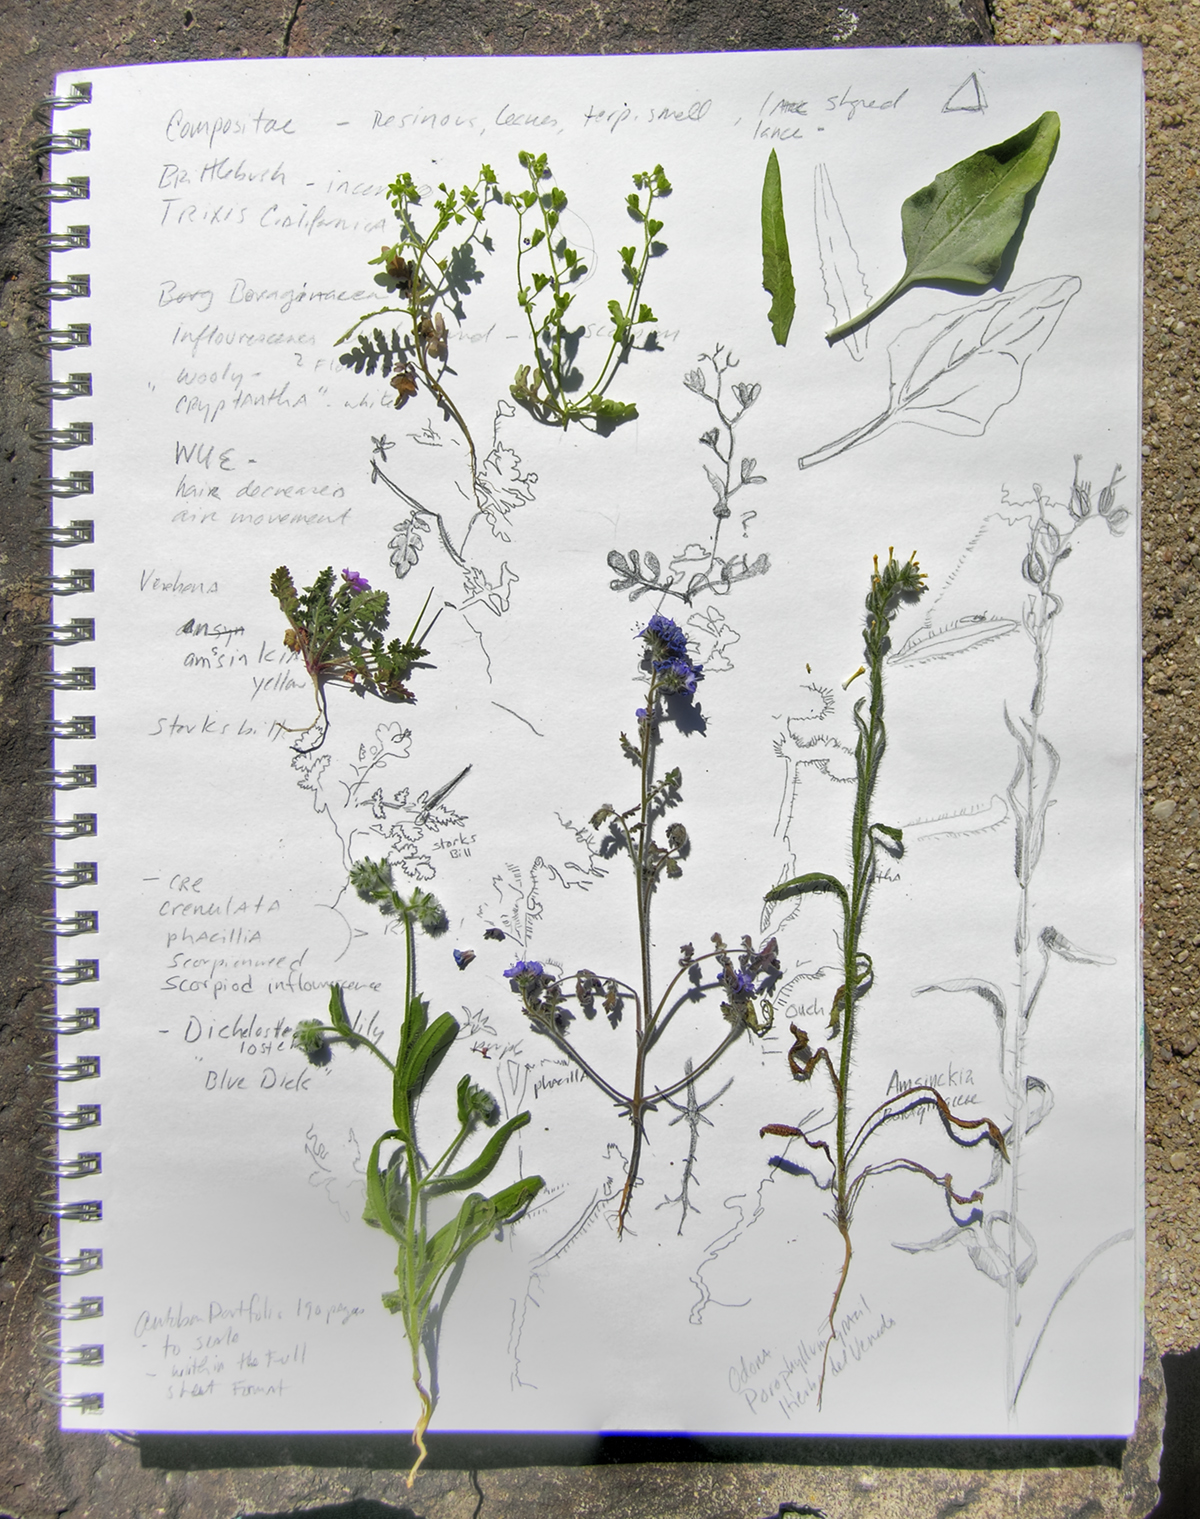 Compositae - Resinous, leaves, terp. smell, shaped
lance -
Brittlebush -
TRIXIS California
Borg Boraginacea
inflourescenes
wooly -
"CRYPTANTHA" - white
WUE -
hair decreases
air movement
Verbena
Amsyn
amsinkia
yellow
Storks bill
storks
Bill
- CRE
Crenulata
phacillia
Scorpionweed
Scorpiod inflourescence
- Dichelostema lily
loste
"Blue Dick"
phacilla
ouch
Amsinckia
Boraginaceae
Audubon Portfolio 190 pages
- to scale
- within the Full
sheet Format
Odora
Porophyllum gracil
Hierb del Venado